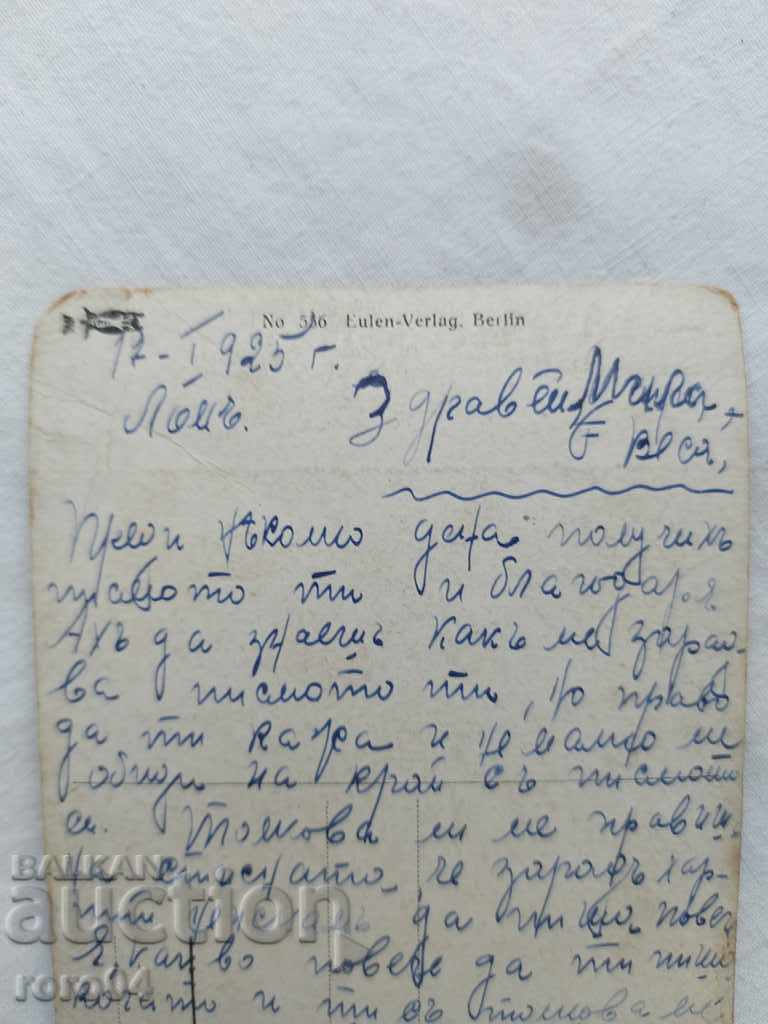 No 536 Eulen-Verlag. Berlin
17-I 925 г.
Ломъ. Здравей
Веса,
Преди нѣколко дена получихъ
писмото ти и благодаря.
Ахъ да знаешъ какъ ме зарад-
ва писмото ти, но право
да ти кажа и немалко ме
обиди на край съ писмото
си. Толкова ли ме правиш
на стисната, че зарадъ хар-
тия да пиша повече
Я, какво повече да ти пиша
когато и ти съ толкова ме
BALKAN
auction
roro04